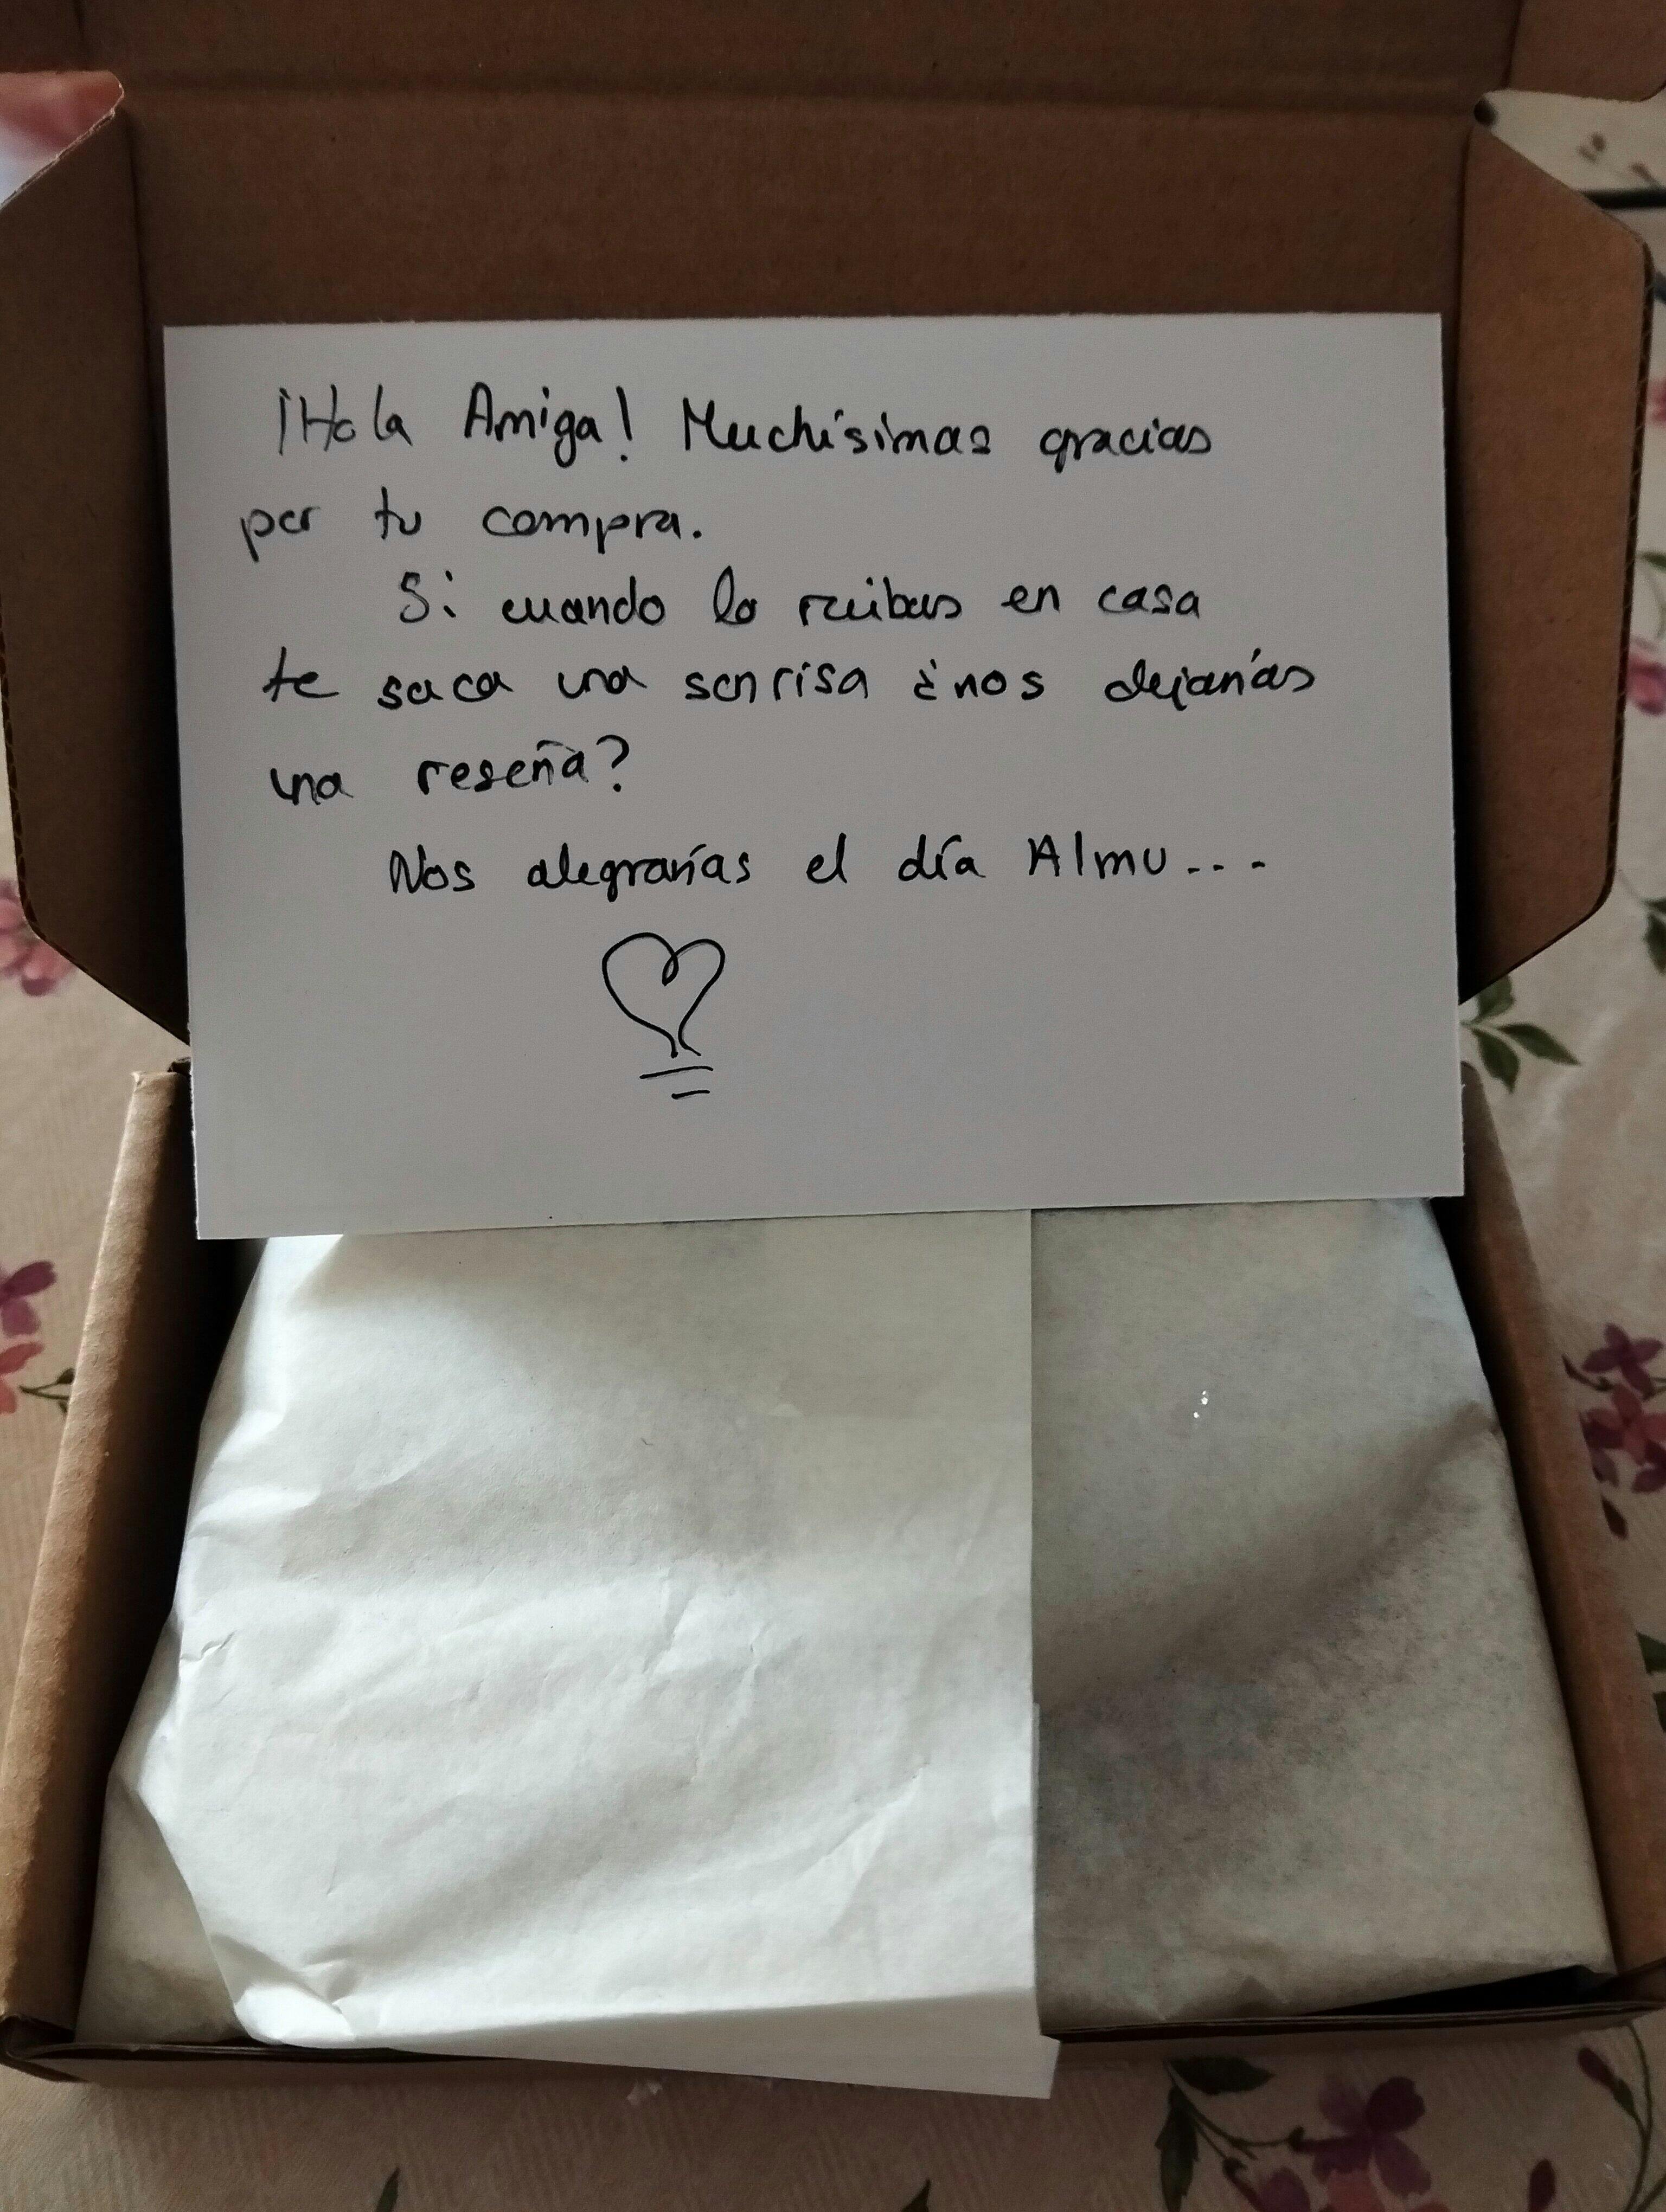 ¡Hola Amiga! Muchísimas gracias
por tu compra.
Si cuando lo recibas en casa
te saca una sonrisa ¿nos dejarías
una reseña?
Nos alegrarías el día Almu...